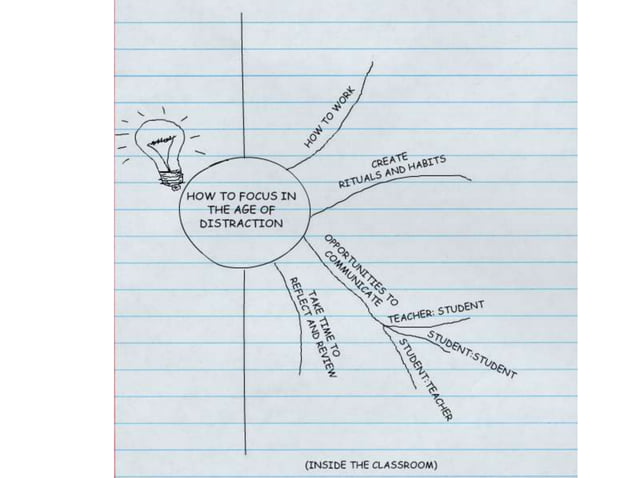 HOW TO WORK
CREATE
RITUALS AND HABITS
HOW TO FOCUS IN
THE AGE OF
DISTRACTION
OPPORTUNITIES TO
COMMUNICATE
TEACHER: STUDENT
STUDENT:STUDENT
STUDENT:TEACHER
TAKE TIME TO
REFLECT AND REVIEW
(INSIDE THE CLASSROOM)